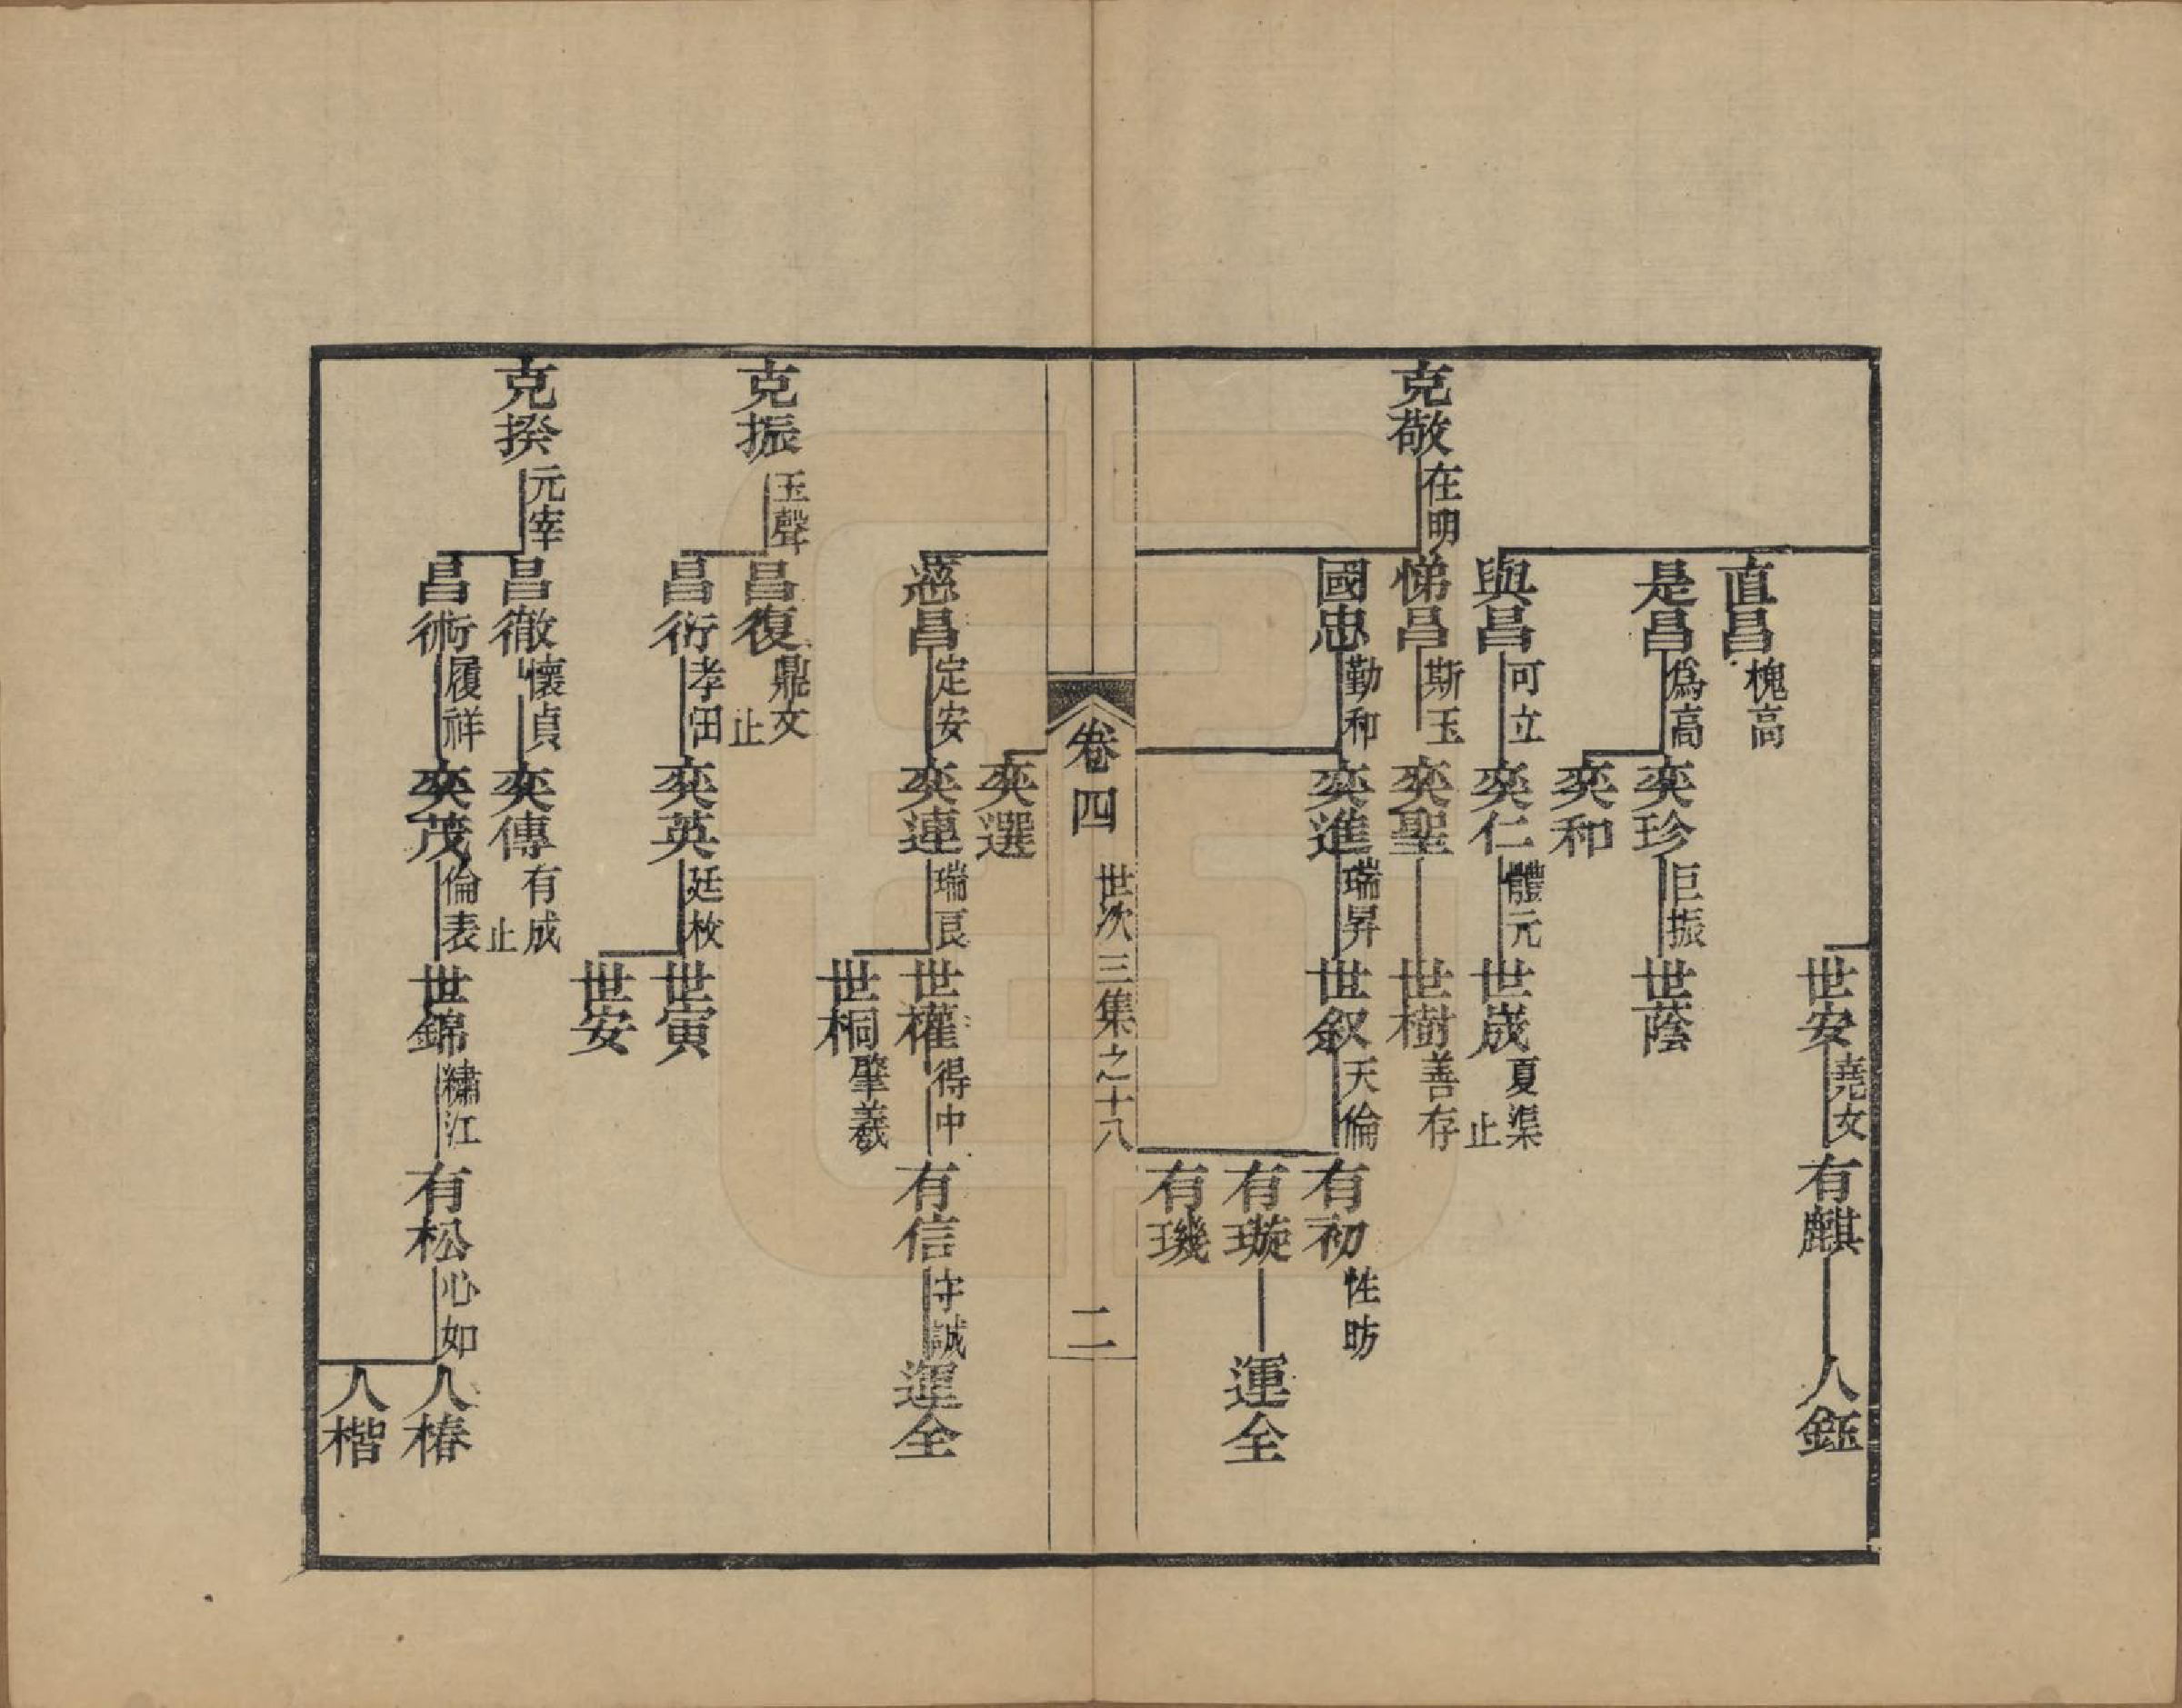 世安 堯文 有麒 人鉦
直昌 槐高
是昌 爲高 奕珍 巨振 世蔭
奕和
與昌 可立 奕仁 體元 世成 夏渠 止
克敬 在明 悌昌 斯玉 奕聖 世樹 善存
國忠 勤和 奕進 瑞昇 世叙 天倫 有初 性昉
有璇 運全
有璣
卷四 世次三集之十八 二
奕選
慈昌 定安 奕連 瑞良 世權 得中 有信 守誠 運全
世桐 肇羲
克振 玉聲 昌復 鼎文 止
昌衍 孝田 奕英 廷枚 世寅
世安
克揆 元宰 昌徹 懷貞 奕傳 有成 止
昌術 履祥 奕茂 倫表 世錦 繡江 有松 心如 人椿
人楷